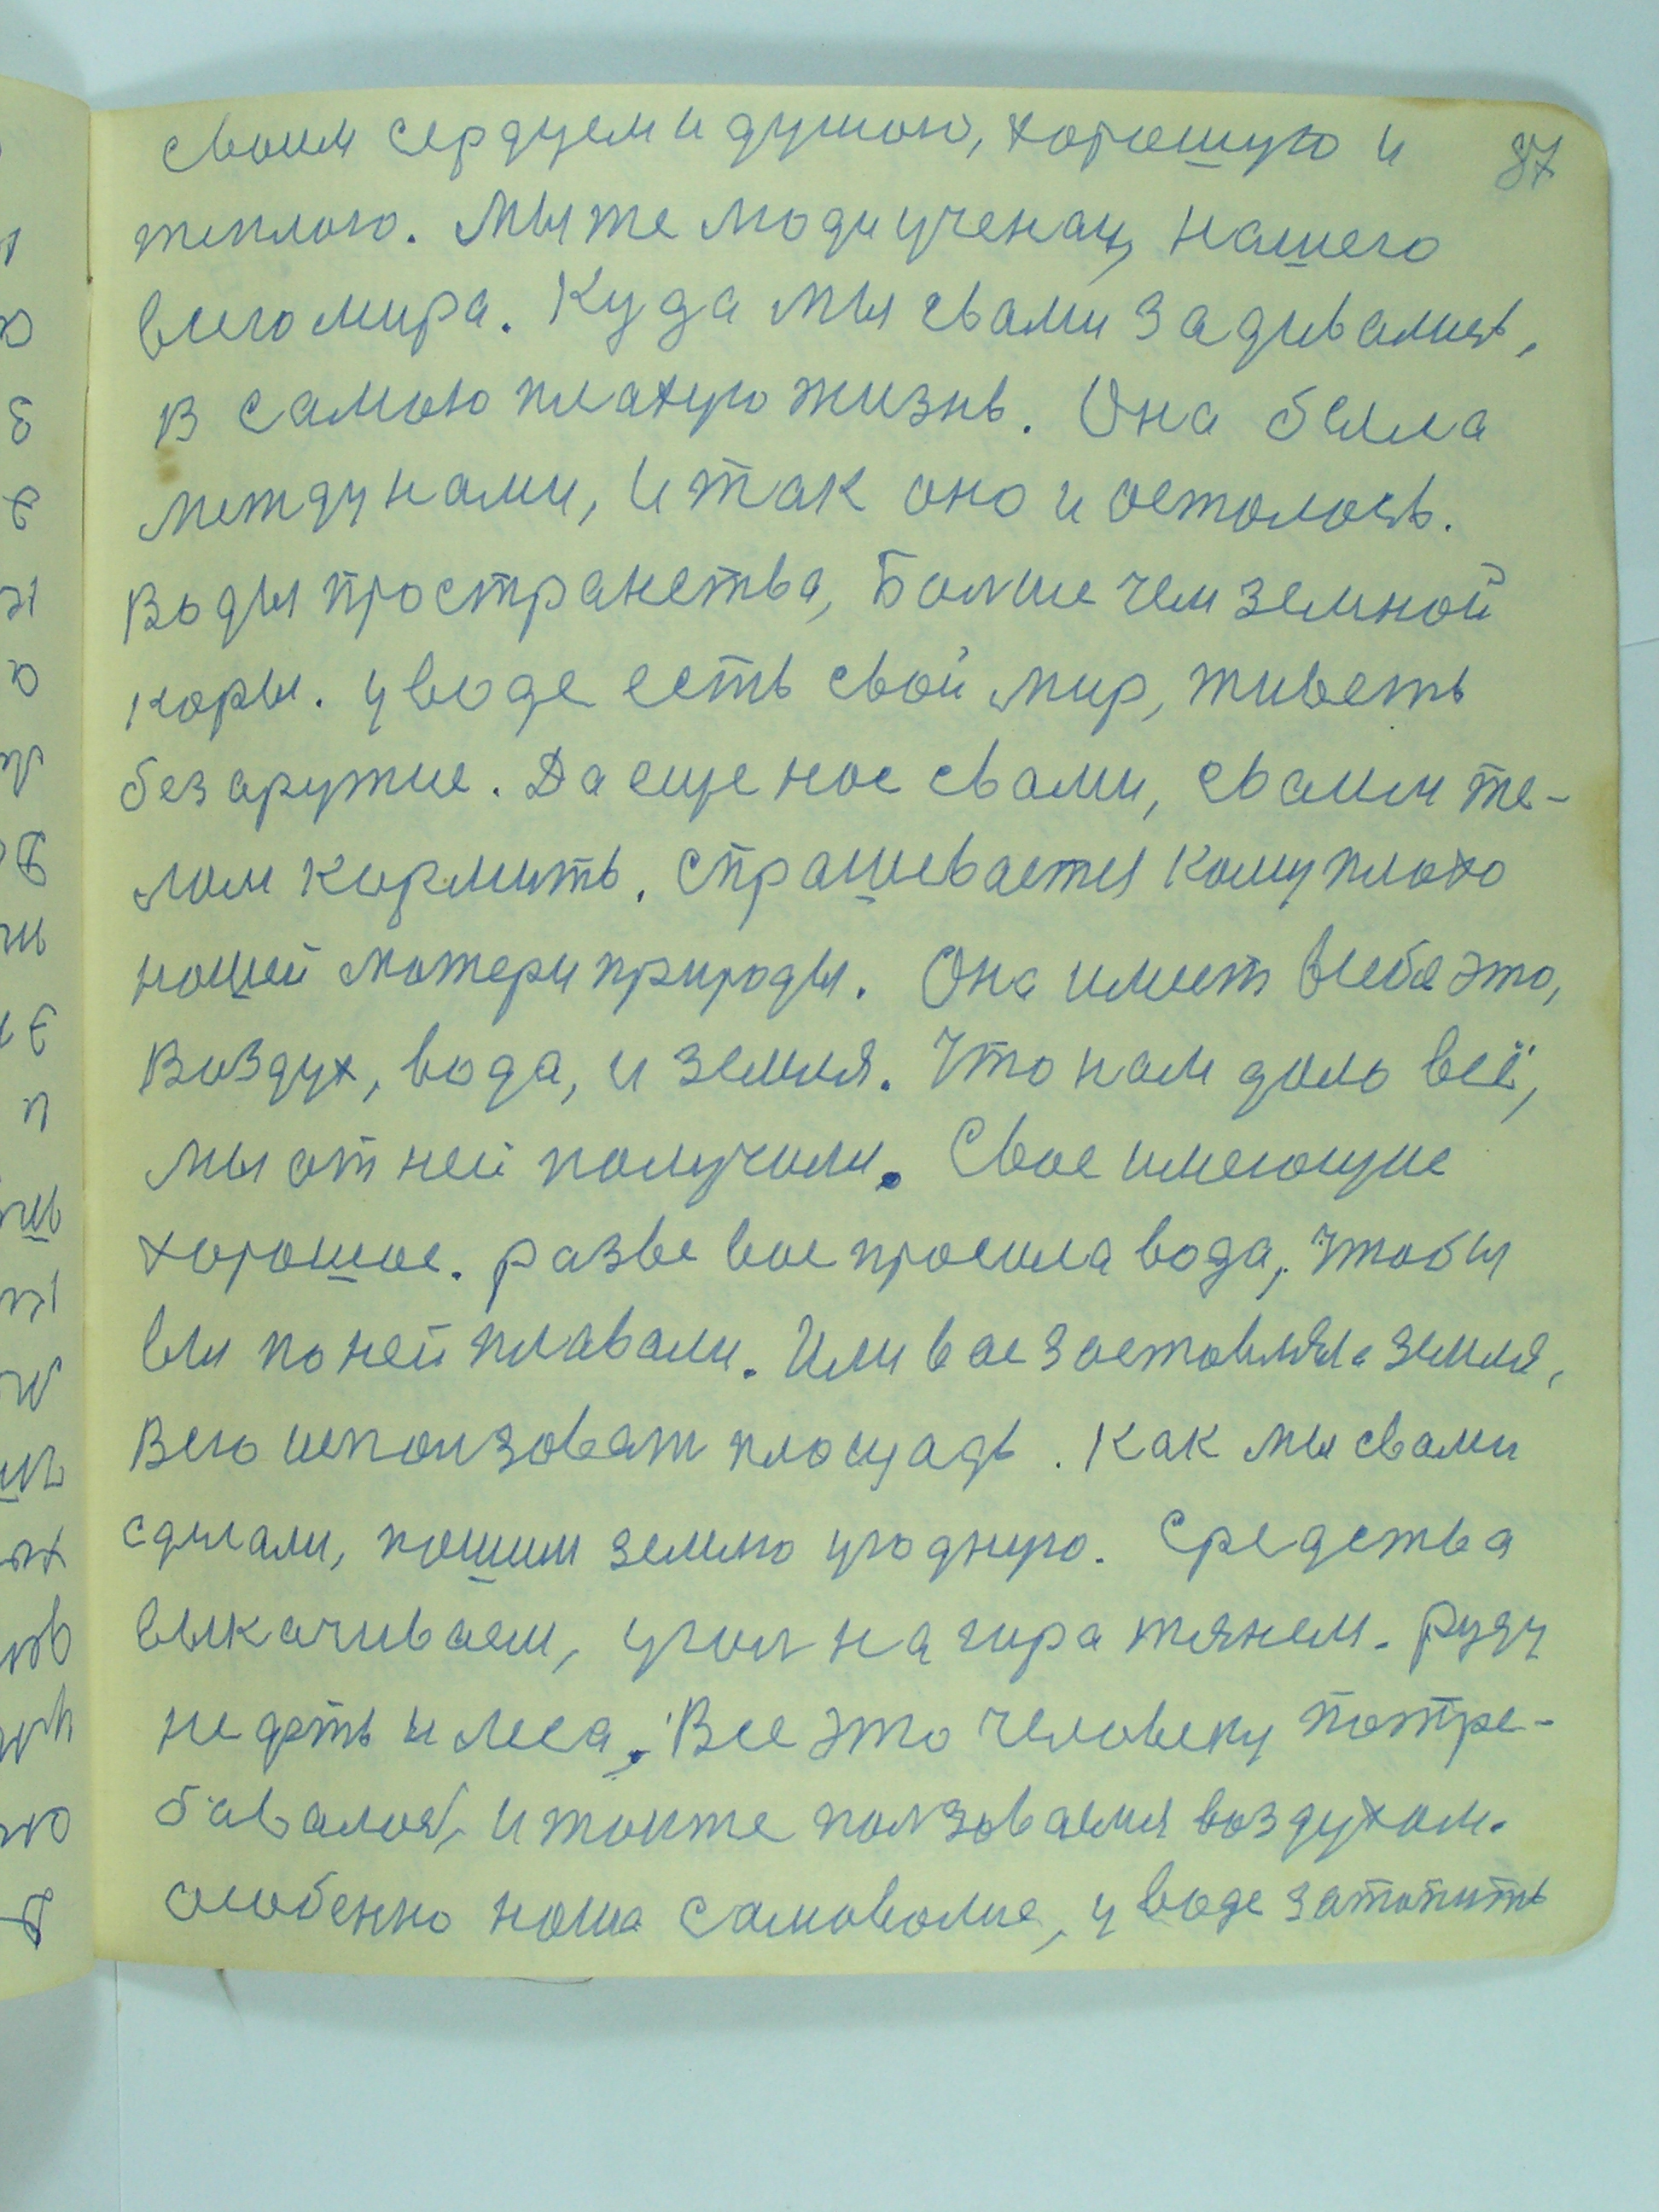 своим сердцем и душою, хорошую и 87
теплою. Мы же люди ученаи, нашего
всего мира. Куда мы свами задивались,
в самою плахую жизнь. Она была
между нами, и так оно и осталось.
Воды пространства, Болше чем земной
коры. у воде есть свой мир, живеть
без аружие. Да еще нас свами, сваим те-
лом кормить. Спрашевается кому плохо
нашей матери природы. Она имеит всебе это,
Воздух, вода, и земля. Что нам дало всё,
мы от ней получили. Свое имеющие
хорошое. разве вас просила вода, чтобы
вы по ней плавали. Или вас заставляла земля,
Всю исползоват площадь. Как мы свами
сделали, пашим землю угодную. Средства
выкачиваем, угол на гора тянем. Руду
не дють и леса. Все это человеку потре-
бавалось, и тоиже ползоваемся воздухом.
особенно наша самоволие, у воде затопить